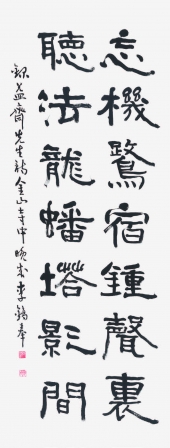 忘機鷺宿鍾聲裏
聽法龍蟠塔影間
錄益齋先生詩金山寺中晚出 李錫奉